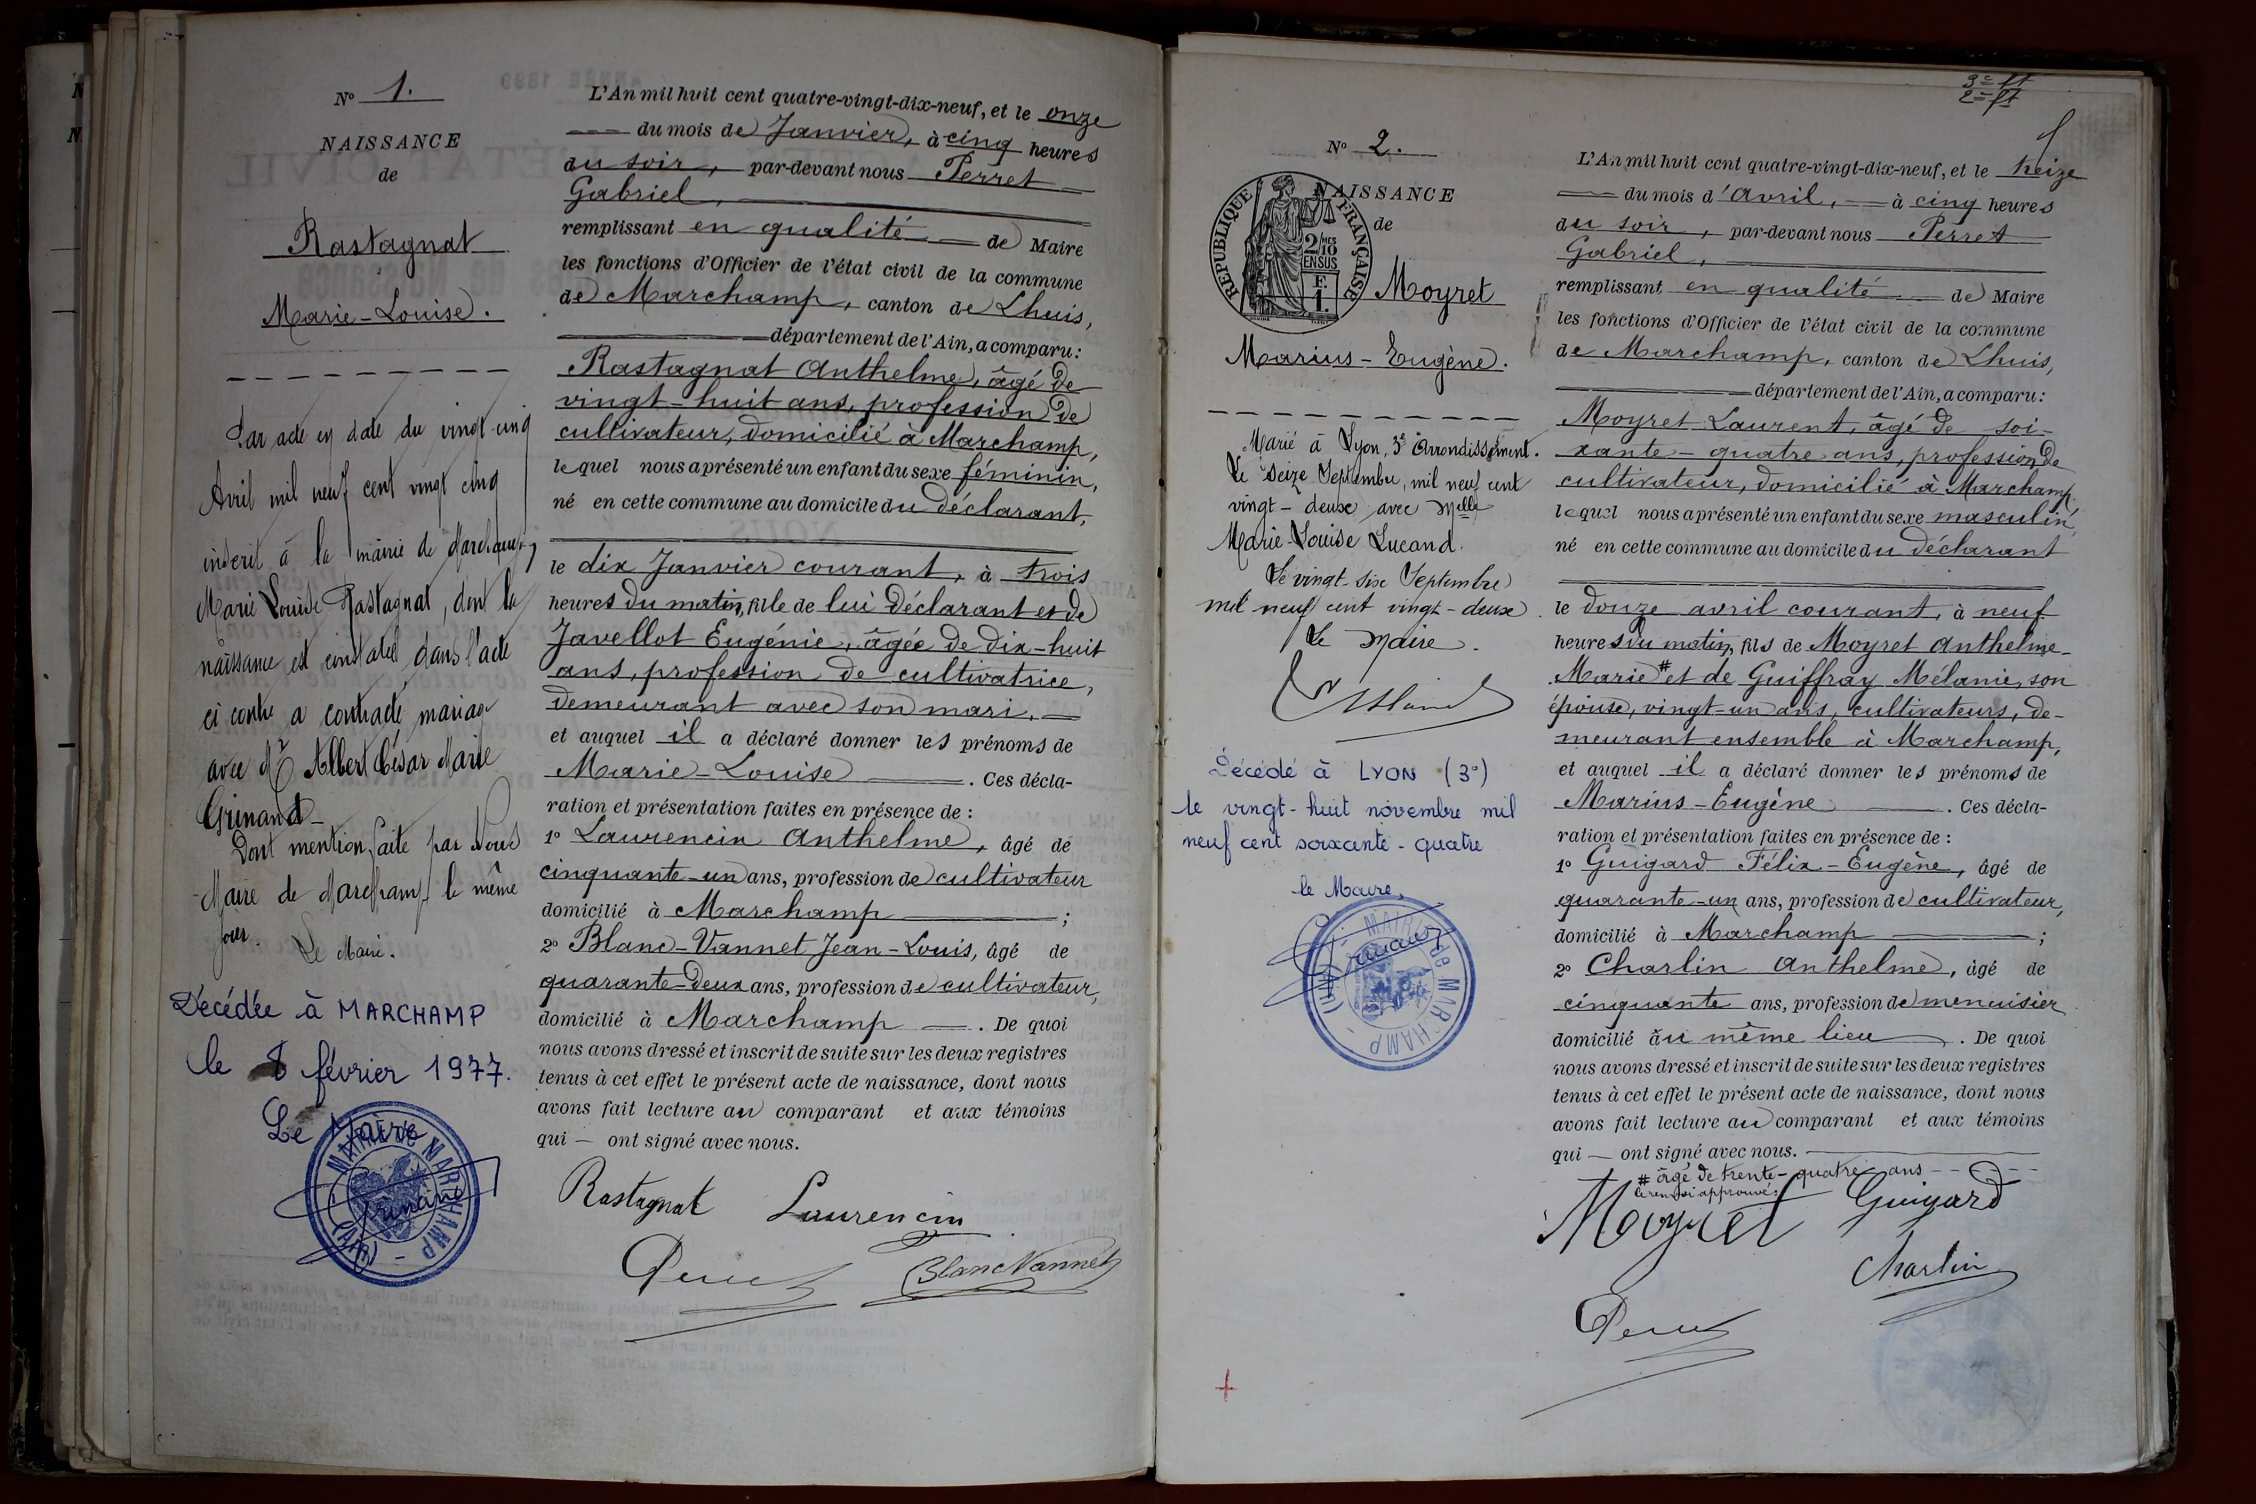 N° 1.
NAISSANCE
de
Rastagnat
Marie-Louise.
Par acte en date du vingt-cinq
Avril mil neuf cent vingt cinq
inscrit à la mairie de Marchamp,
Marie Louise Rastagnat, dont la
naissance est constatée dans l'acte
ci contre a contracté mariage
avec Mr Albert César Marie
Grinand-
Dont mention faite par Nous
Maire de Marchamp le même
jour.
Le Maire.
Décédée à MARCHAMP
le 8 février 1977.
Le Maire
MAIRIE DE MARCHAMP - (AIN)
L'An mil huit cent quatre-vingt-dix-neuf, et le onze
du mois de Janvier, à cinq heures
du soir, par-devant nous Perret
Gabriel,
remplissant en qualité de Maire
les fonctions d'Officier de l'état civil de la commune
de Marchamp, canton de Lhuis,
département de l'Ain, a comparu:
Rastagnat Anthelme, âgé de
vingt-huit ans, profession de
cultivateur, domicilié à Marchamp,
lequel nous a présenté un enfant du sexe féminin,
né en cette commune au domicile du déclarant,
le dix Janvier courant, à trois
heures du matin, fille de lui déclarant et de
Javellot Eugénie, âgée de dix-huit
ans, profession de cultivatrice,
demeurant avec son mari,
et auquel il a déclaré donner les prénoms de
Marie-Louise. Ces décla-
ration et présentation faites en présence de :
1° Laurencin Anthelme, âgé de
cinquante-un ans, profession de cultivateur
domicilié à Marchamp ;
2° Blanc-Vannet Jean-Louis, âgé de
quarante-deux ans, profession de cultivateur,
domicilié à Marchamp. De quoi
nous avons dressé et inscrit de suite sur les deux registres
tenus à cet effet le présent acte de naissance, dont nous
avons fait lecture au comparant et aux témoins
qui — ont signé avec nous.
Rastagnat Laurencin
Perret Blanc Vannet
N° 2.
NAISSANCE
de
RÉPUBLIQUE FRANÇAISE
2/10 EN SUS
F. 1.
Moyret
Marius-Eugène.
Marié à Lyon, 3e Arrondissement.
Le seize Septembre, mil neuf cent
vingt-deux avec Melle
Marie-Louise Lucand.
Le vingt-six Septembre
mil neuf cent vingt-deux
Le Maire.
Décédé à LYON (3°)
le vingt-huit novembre mil
neuf cent soixante-quatre
le Maire,
MAIRIE de MARCHAMP - (AIN)
L'An mil huit cent quatre-vingt-dix-neuf, et le treize
du mois d'Avril, à cinq heures
du soir, par-devant nous Perret
Gabriel,
remplissant en qualité de Maire
les fonctions d'Officier de l'état civil de la commune
de Marchamp, canton de Lhuis,
département de l'Ain, a comparu:
Moyret Laurent, âgé de soi-
xante-quatre ans, profession de
cultivateur, domicilié à Marchamp
lequel nous a présenté un enfant du sexe masculin,
né en cette commune au domicile du déclarant
le douze avril courant, à neuf
heures du matin, fils de Moyret Anthelme-
Marie # et de Guiffray Mélanie, son
épouse, vingt-un ans, cultivateurs, de-
meurant ensemble à Marchamp,
et auquel il a déclaré donner les prénoms de
Marius-Eugène. Ces décla-
ration et présentation faites en présence de :
1° Guigard Félix-Eugène, âgé de
quarante-un ans, profession de cultivateur,
domicilié à Marchamp ;
2° Charlin Anthelme, âgé de
cinquante ans, profession de menuisier
domicilié au même lieu. De quoi
nous avons dressé et inscrit de suite sur les deux registres
tenus à cet effet le présent acte de naissance, dont nous
avons fait lecture au comparant et aux témoins
qui — ont signé avec nous.
# âgé de trente-quatre ans
le renvoi approuvé:
Moyret Guigard
Charlin
Perret